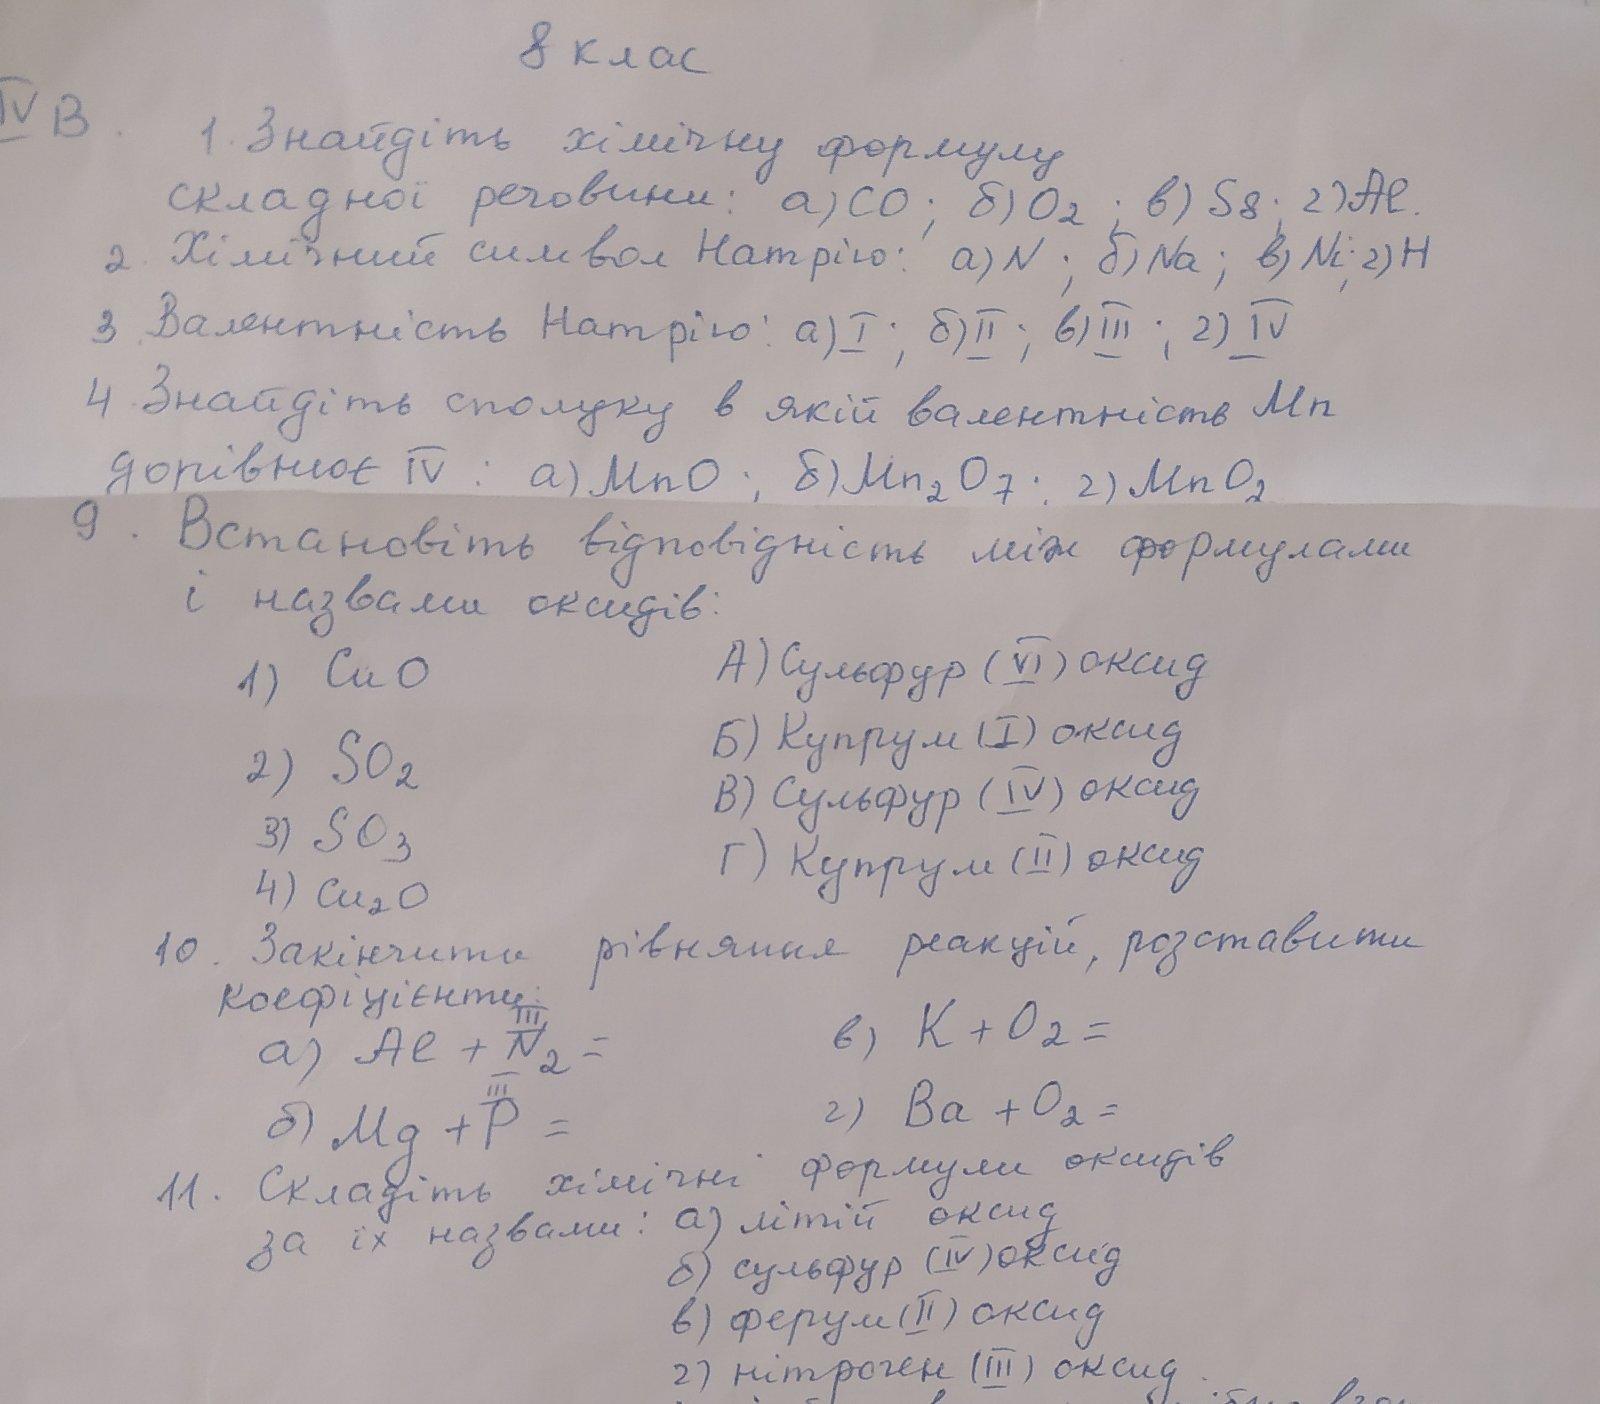 8 клас
IV В. 1. Знайдіть хімічну формулу
складної речовини: а) CO; б) O2; в) S8; г) Al.
2. Хімічний символ Натрію: а) N; б) Na; в) Ni; г) H
3. Валентність Натрію: а) I; б) II; в) III; г) IV
4. Знайдіть сполуку в якій валентність Mn
дорівнює IV: а) MnO; б) Mn2O7; г) MnO2
9. Встановіть відповідність між формулами
і назвами оксидів:
1) CuO А) Сульфур (VI) оксид
2) SO2 Б) Купрум (I) оксид
3) SO3 В) Сульфур (IV) оксид
4) Cu2O Г) Купрум (II) оксид
10. Закінчити рівняння реакцій, розставити
коефіцієнти:
III
а) Al + N2 = в) K + O2 =
III
б) Mg + P = г) Ba + O2 =
11. Складіть хімічні формули оксидів
за їх назвами: а) літій оксид
б) сульфур (IV) оксид
в) ферум (II) оксид
г) нітроген (III) оксид.